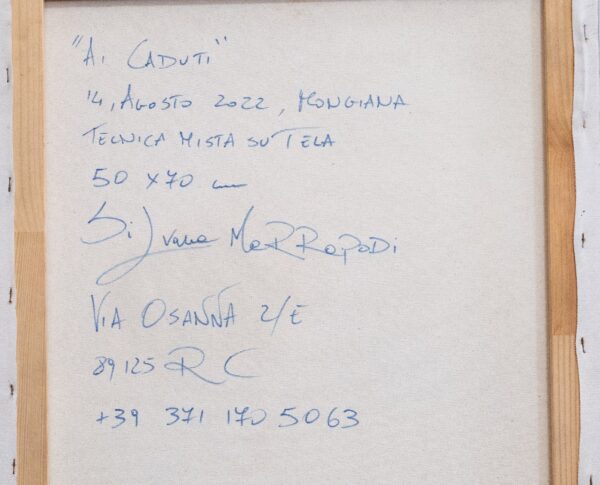 "Ai CADUTI"
14, AGOSTO 2022, MONGIANA
TECNICA MISTA SU TELA
50 x 70 cm
Silvana MARRAPODI
VIA OSANNA 2/E
89125 RC
+39 371 170 5063